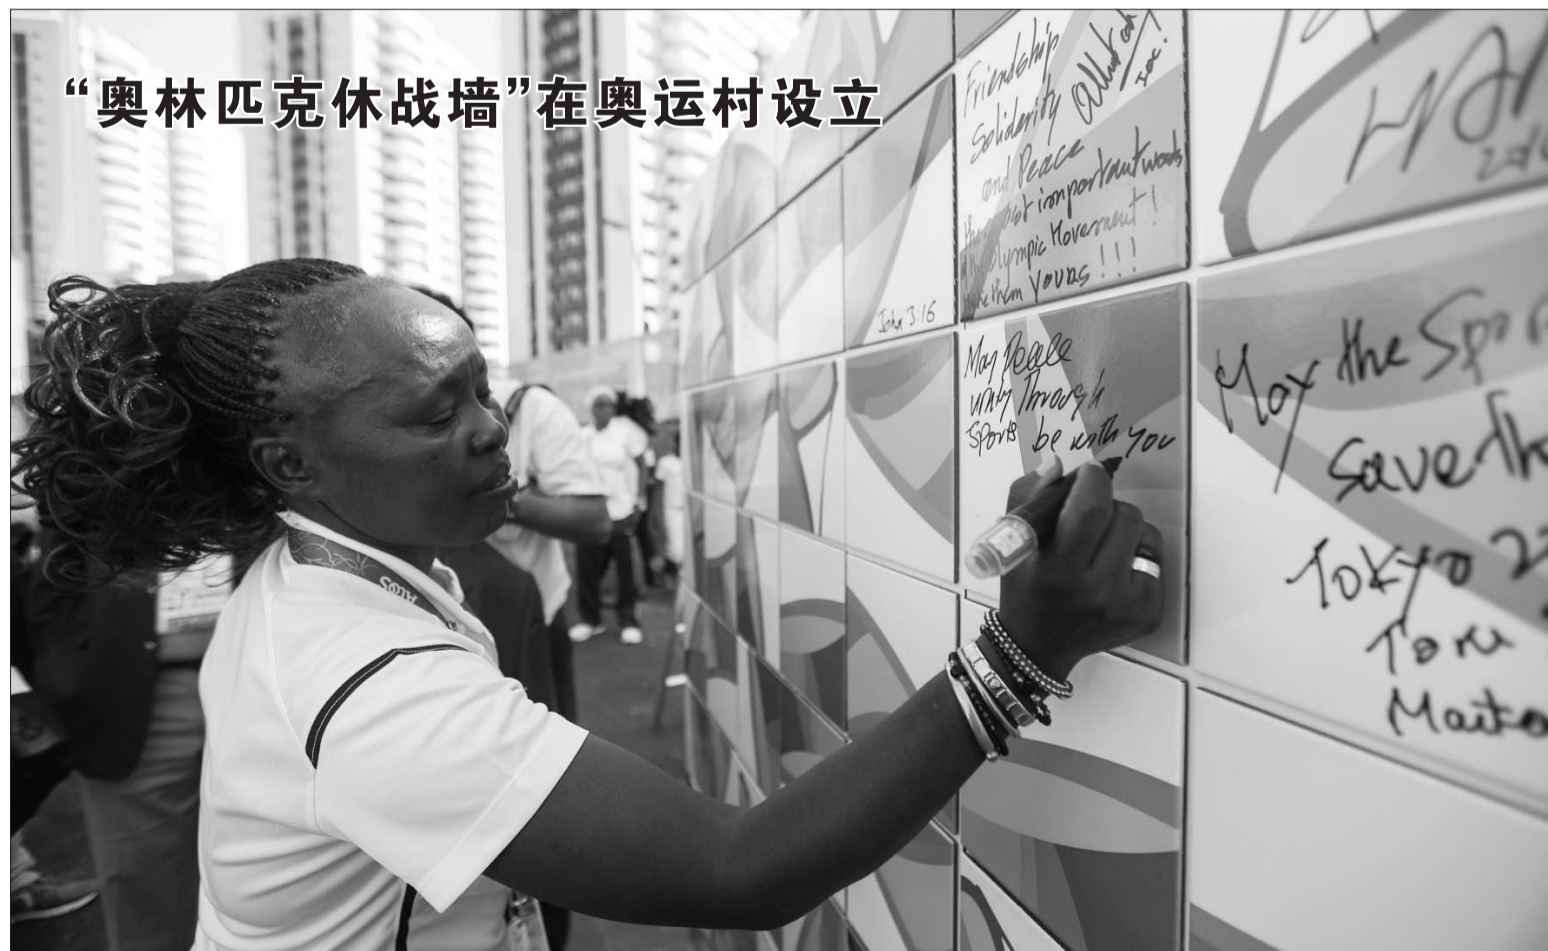 “奥林匹克休战墙”在奥运村设立
Friendship
Solidarity
and Peace
important words
Olympic Movement!
them YOURS!!!
IOC!
John 3:16
May peace
unity through
sports be with you
May the Spor
save th
Tokyo 2
Maito